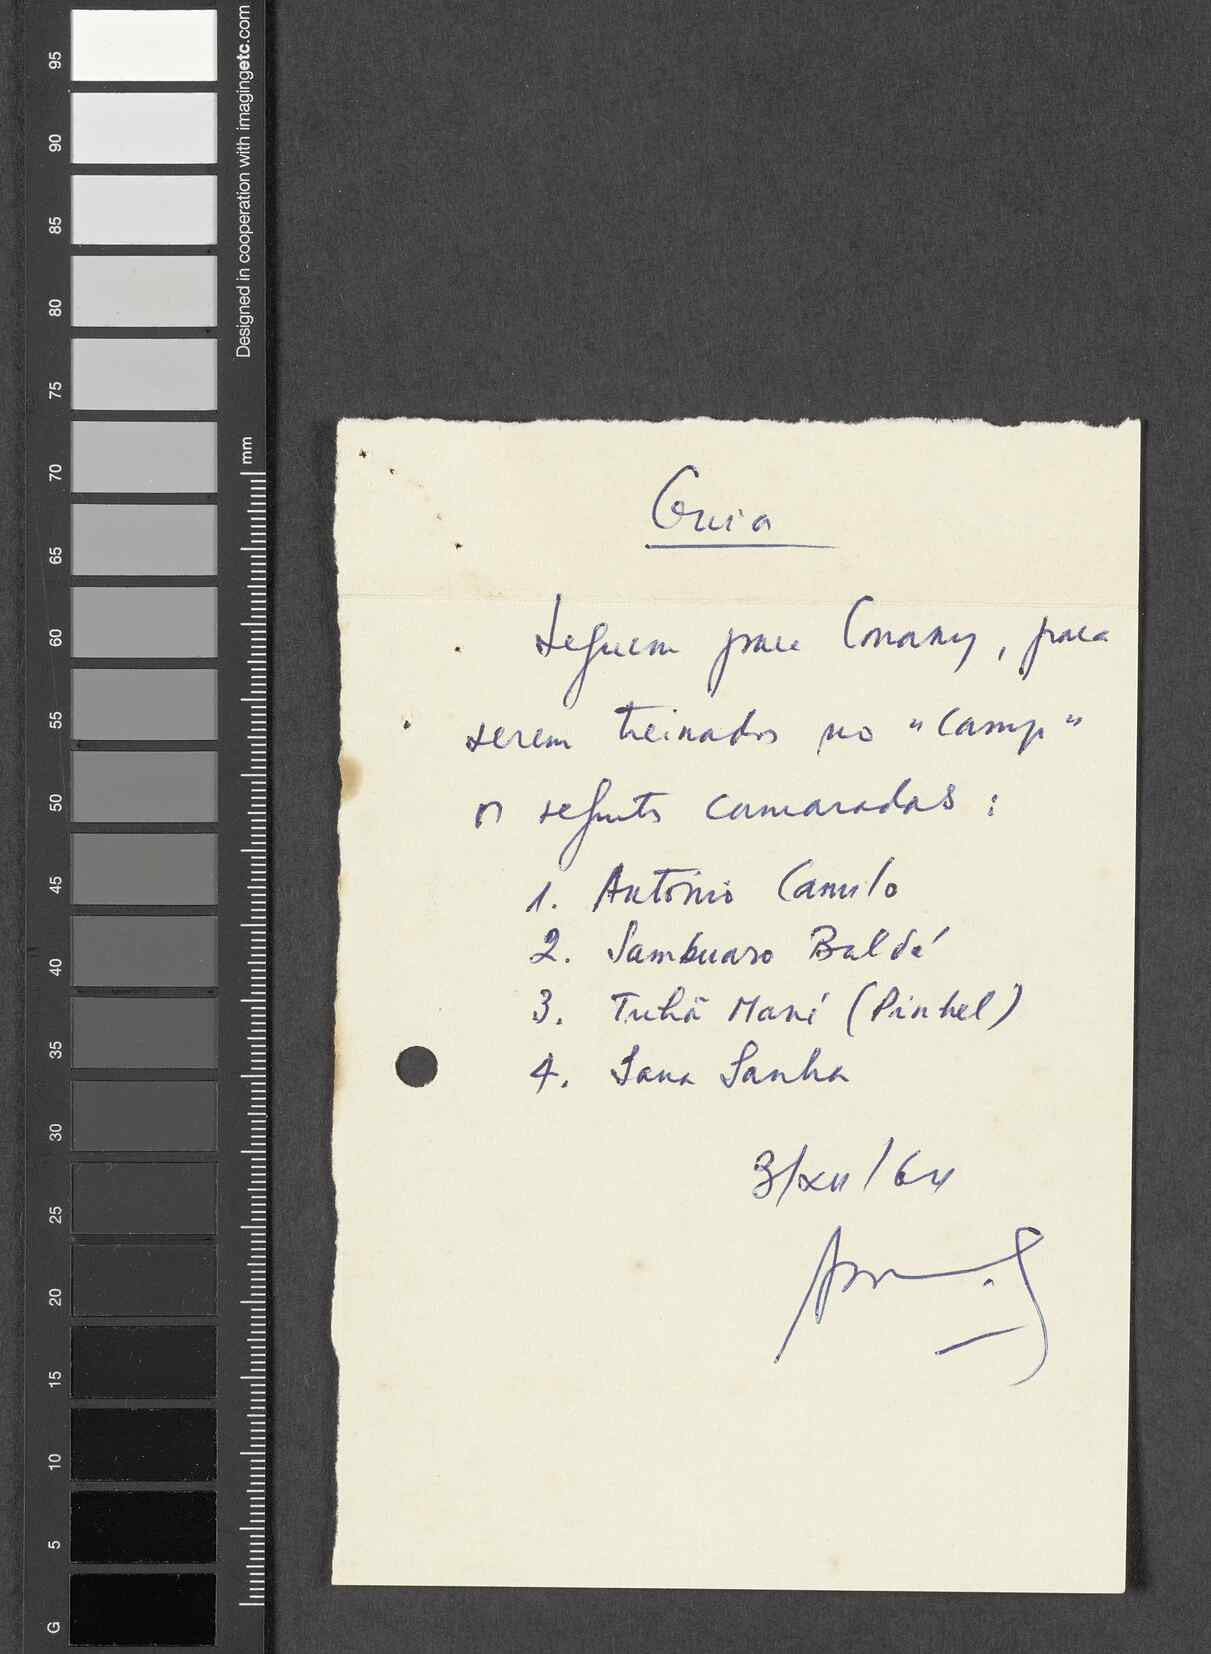 Designed in cooperation with imagingetc.com
mm
95
90
85
80
75
70
65
60
55
50
45
40
35
30
25
20
15
10
5
G
Guia
Seguem para Conakry, para
serem treinados no "Camp"
os seguintes camaradas:
1. António Camilo
2. Sambuaro Baldé
3. Tuhã Mané (Pinhel)
4. Sana Sanha
3/XII/64